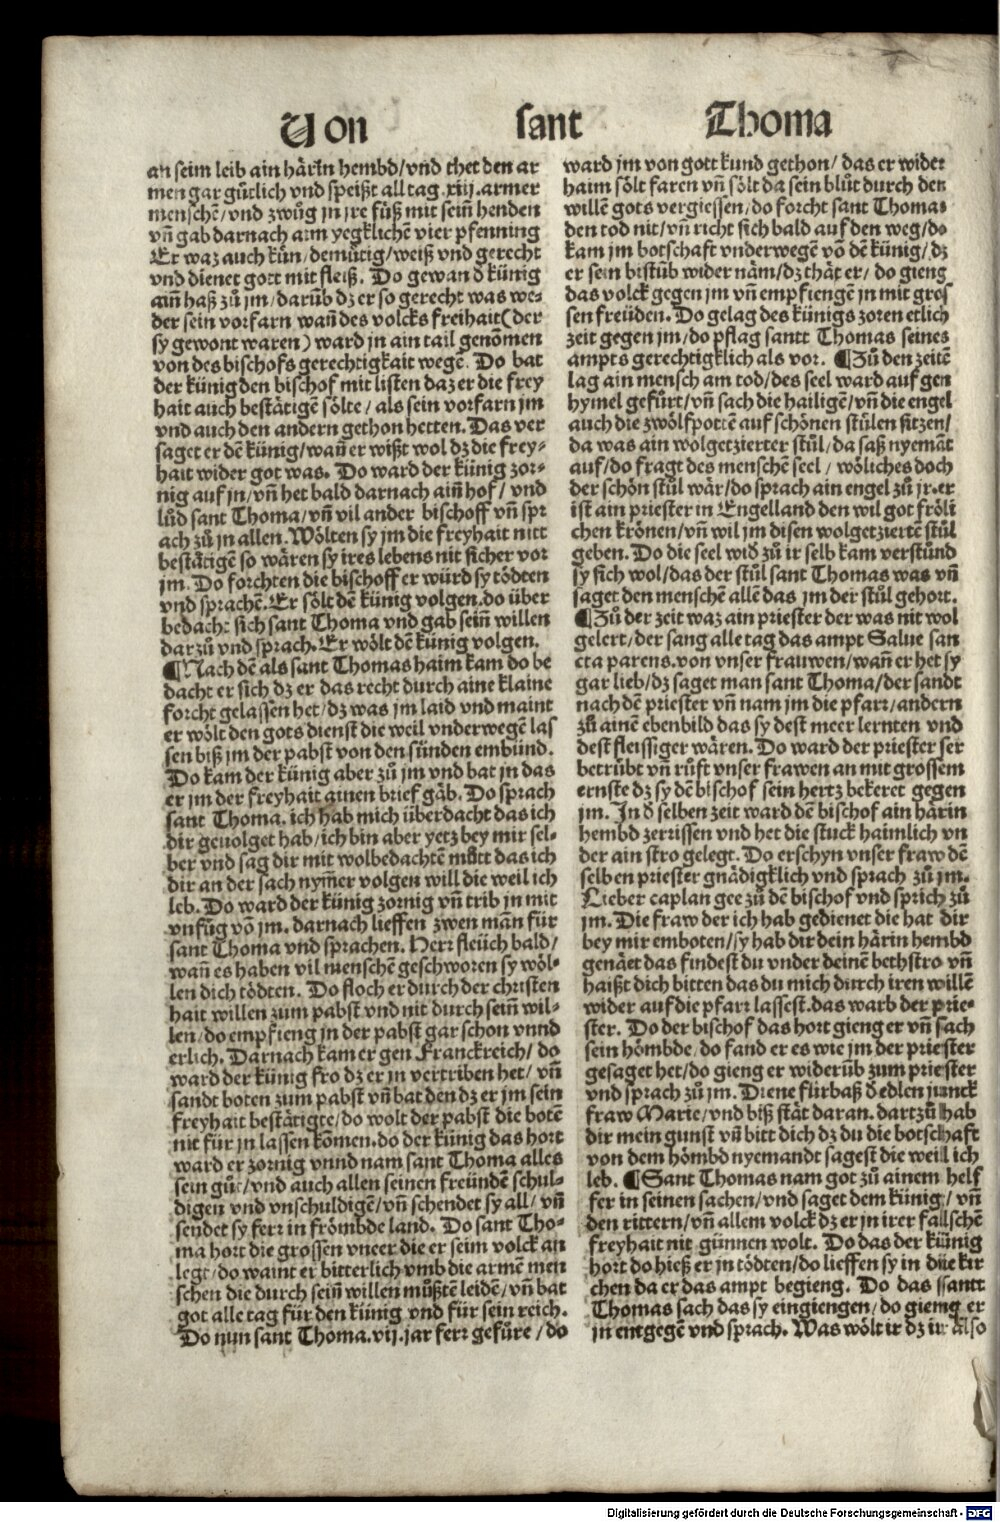 Von sant Thoma
an seim leib ain härin hembd/vnd thet den ar
men gar gůtlich vnd speißt all tag .xiij. armer
menschē/vnd zwůg in jre fůß mit seiñ henden
vñ gab darnach aim yegklichē vier pfenning
Er waz auch kůn/demůtig/weiß vnd gerecht
vnd dienet gott mit fleiß. Do gewan d künig
aiñ haß zů jm/darůb dz er so gerecht was we⸗
der sein vorfarn wañ des volcks freihait(der
sy gewont waren) ward in ain tail genōmen
von des bischofs gerechtigkait wegē. Do bat
der künig den bischof mit listen daz er die frey
hait auch bestätigē sölte/als sein vorfarn jm
vnd auch den andern gethon hetten. Das ver
saget er dē künig/wañ er wißt wol dz die frey⸗
hait wider got was. Do ward der künig zor⸗
nig auf jn/vñ het bald darnach aiñ hof/vnd
lůd sant Thoma/vñ vil ander bischoff vñ spr
ach zů jn allen. Wölten sy jm die freyhait nitt
bestätigē so wären sy ires lebens nit sicher vor
jm. Do forchten die bischoff er würd sy tödten
vnd sprachē. Er sölt dē künig volgen. do über
bedacht sich sant Thoma vnd gab seiñ willen
darzů vnd sprach. Er wölt dē künig volgen.
¶Nach dē als sant Thomas haim kam do be
dacht er sich dz er das recht durch aine klaine
forcht gelassen het/dz was jm laid vnd maint
er wölt den gots dienst die weil vnderwegē las
sen biß jm der pabst von den sünden embünd.
Do kam der künig aber zů jm vnd bat jn das
er jm der freyhait ainen brief gäb. Do sprach
sant Thoma. ich hab mich überdacht das ich
dir geuolget hab/ich bin aber yetz bey mir sel⸗
ber vnd sag dir mit wolbedachtē můtt das ich
dir an der sach nym̄er volgen will die weil ich
leb. Do ward der künig zornig vñ trib jn mit
vnfůg vō jm. darnach lieffen zwen man für
sant Thoma vnd sprachen. Herr fleüch bald/
wañ es haben vil menschē geschworen sy wöl⸗
len dich tödten. Do floch er durch der christen
hait willen zum pabst vnd nit durch seiñ wil⸗
len/do empfieng jn der pabst gar schon vnnd
erlich. Darnach kam er gen Franckreich/do
ward der künig fro dz er jn vertriben het/vñ
sandt boten zum pabst vñ bat den dz er jm sein
freyhait bestätigte/do wolt der pabst die botē
nit für jn lassen kōmen. do der künig das hort
ward er zornig vnnd nam sant Thoma alles
sein gůt/vnd auch allen seinen freündē schul⸗
digen vnd vnschuldigē/vñ schendet sy all/vñ
sendet sy ferr in frömbde land. Do sant Tho⸗
ma hort die grossen vneer die er seim volck an
legt/do waint er bitterlich vmb die armē men
schen die durch seiñ willen můßtē leidē/vñ bat
got alle tag für den künig vnd für sein reich.
Do nun sant Thoma .vij. jar ferr gefüre/do
ward jm von gott kund gethon/das er wider
haim sölt faren vñ sölt da sein blůt durch den
willē gots vergiessen/do forcht sant Thomas
den tod nit/vñ richt sich bald auf den weg/do
kam jm botschaft vnderwegē vō dē künig/dz
er sein bistüb wider näm/dz thät er/do gieng
das volck gegen jm vñ empfiengē jn mit gros
sen freüden. Do gelag des künigs zoren etlich
zeit gegen jm/do pflag santt Thomas seines
ampts gerechtigklich als vor. ¶Zů den zeitē
lag ain mensch am tod/des seel ward auf gen
hymel gefürt/vñ sach die hailigē/vñ die engel
auch die zwölfpottē auf schönen stülen sitzen/
da was ain wolgetzierter stůl/da saß nyemāt
auf/do fragt des menschē seel/wöliches doch
der schön stůl wär/do sprach ain engel zů jr. er
ist ain priester in Engelland den wil got fröli
chen krönen/vñ wil jm disen wolgetziertē stůl
geben. Do die seel wid zů ir selb kam verstůnd
sy sich wol/das der stůl sant Thomas was vñ
saget den menschē allē das jm der stůl gehort.
¶Zů der zeit waz ain priester der was nit wol
gelert/der sang alle tag das ampt Salue san
cta parens. von vnser frauwen/wañ er het sy
gar lieb/dz saget man sant Thoma/der sandt
nach dē priester vñ nam jm die pfarr/andern
zů ainē ebenbild das sy dest meer lernten vnd
dest fleissiger wären. Do ward der priester ser
betrübt vñ růft vnser frawen an mit grossem
ernste dz sy dē bischof sein hertz bekeret gegen
jm. In d selben zeit ward dē bischof ain härin
hembd zerrissen vnd het die stuck haimlich vn
der ain stro gelegt. Do erschyn vnser fraw dē
selben priester gnädigklich vnd sprach zů jm.
Lieber caplan gee zů dē bischof vnd sprich zů
jm. Die fraw der ich hab gedienet die hat dir
bey mir emboten/sy hab dir dein härin hembd
genäet das findest du vnder deinē bethstro vñ
haißt dich bitten das du mich durch iren willē
wider auf die pfarr lassest. das warb der prie⸗
ster. Do der bischof das hort gieng er vñ sach
sein hömbde/do fand er es wie jm der priester
gesaget het/do gieng er widerůb zum priester
vnd sprach zů jm. Diene fürbaß d edlen junck
fraw Marie/vnd biß stät daran. dartzů hab
dir mein gunst vñ bitt dich dz du die botschaft
von dem hömbd nyemandt sagest die weil ich
leb. ¶Sant Thomas nam got zů ainem helf
fer in seinen sachen/vnd saget dem künig/vñ
den rittern/vñ allem volck dz er jn irer falschē
freyhait nit günnen wolt. Do das der künig
hort do hieß er jn tödten/do lieffen sy in die kir
chen da er das ampt begieng. Do das santt
Thomas sach das sy eingiengen/do gieng er
jn entgegē vnd sprach. Was wölt ir dz ir also
Digitalisierung gefördert durch die Deutsche Forschungsgemeinschaft - DFG